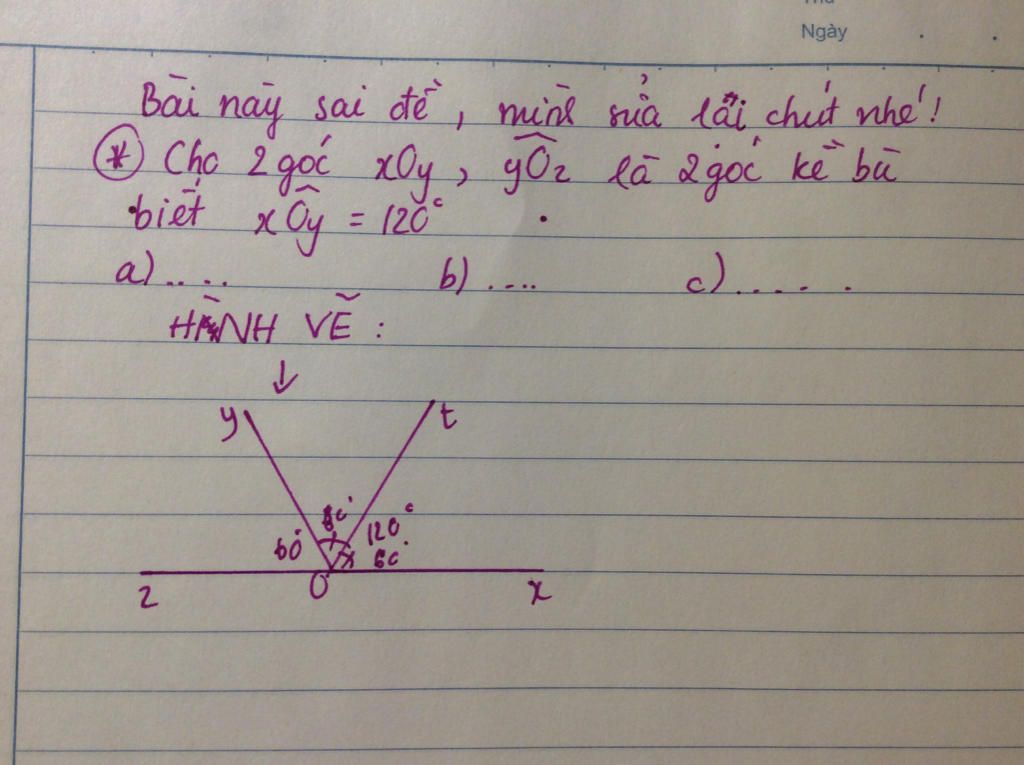 Thứ
Ngày
Bài này sai đề, mình sửa lại chút nhé!
* Cho 2 góc xOy, yOz là 2 góc kề bù
biết xOy = 120°
a).... b).... c).....
HÌNH VẼ :
↓
y t
60° 120°
60°
z O x